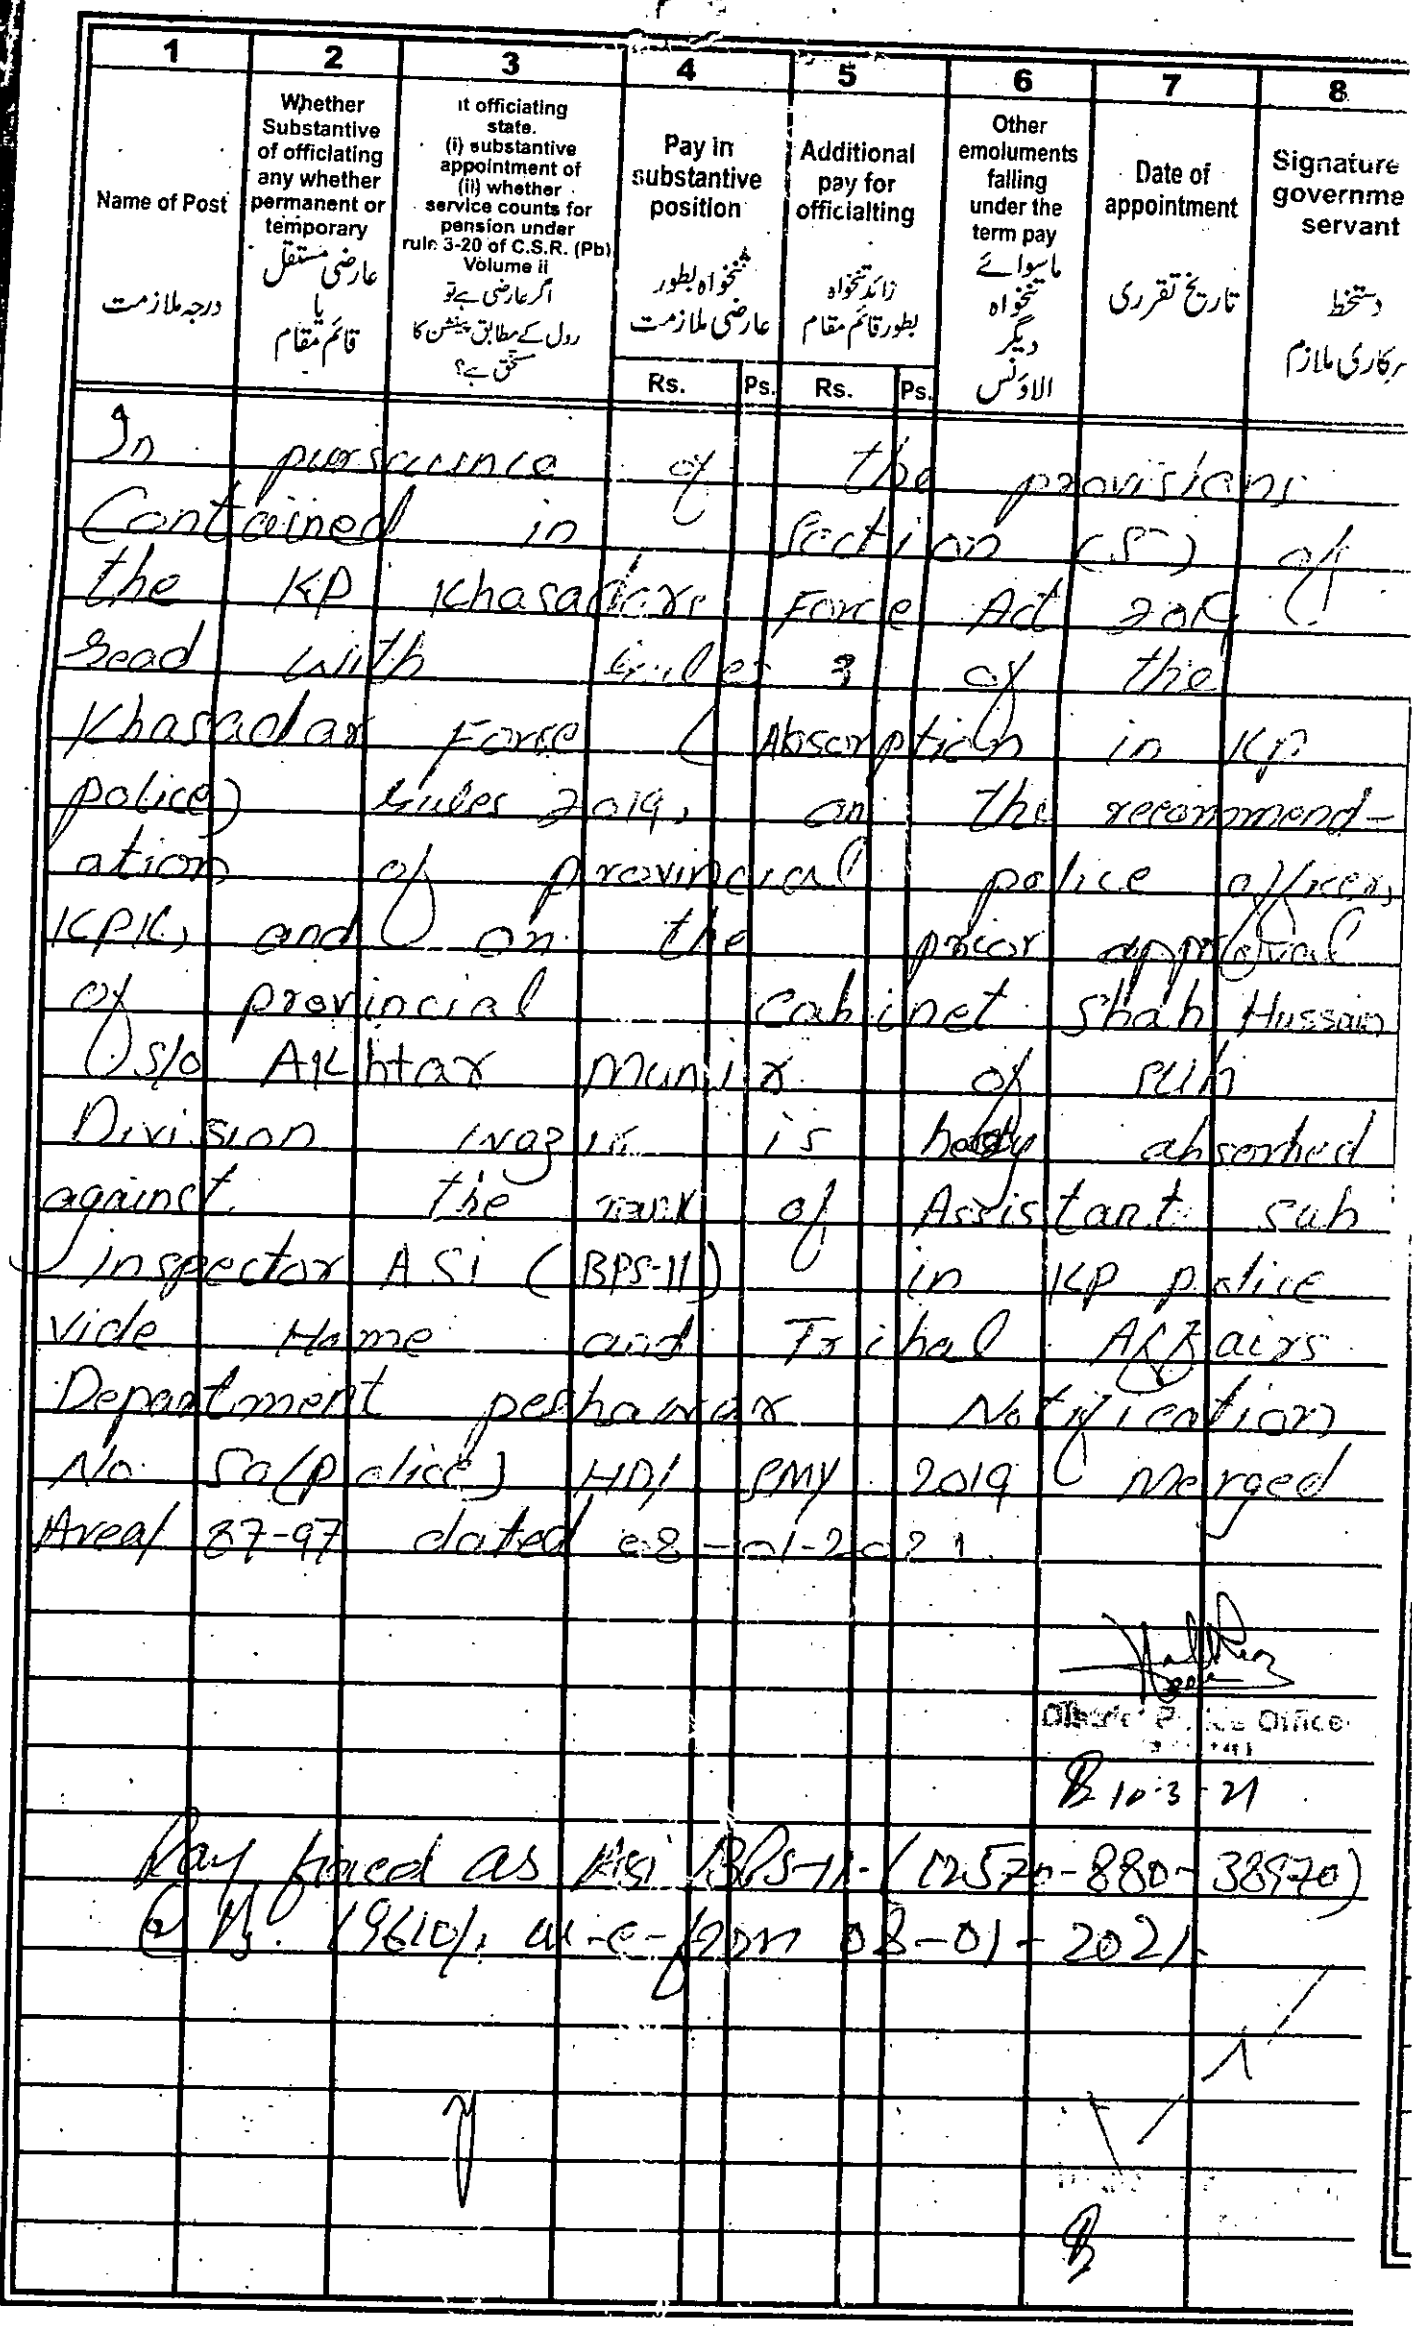 1 2 3 4 5 6 7 8
Name of Post
درجہ ملازمت
Whether
Substantive
of officiating
any whether
permanent or
temporary
عارضی مستقل
یا
قائم مقام
it officiating
state.
(i) substantive
appointment of
(ii) whether
service counts for
pension under
rule 3-20 of C.S.R. (Pb)
Volume ii
اگر عارضی ہے تو
رول کے مطابق پنشن کا
مستحق ہے؟
Pay in
substantive
position
تنخواہ بطور
عارضی ملازمت
Rs. Ps.
Additional
pay for
officialting
زائد تنخواہ
بطور قائم مقام
Rs. Ps.
Other
emoluments
falling
under the
term pay
ماسوائے
تنخواہ
دیگر
الاؤنس
Date of
appointment
تاریخ تقرری
Signature
governme
servant
دستخط
سرکاری ملازم
In pursuance of the provisions
Contained in Section (5) of
the KP Khasadars Force Act 2019
read with rules 3 of the
Khasadar Force (Absorption in KP
police) rules 2019, on the recommend-
ation of provincial police officer,
KPK, and on the prior approval
of provincial Cabinet Shah Hussain
S/o Akhtar Munir of sub
Division wazir is hereby absorbed
against the rank of Assistant sub
inspector ASI (BPS-11) in KP police
vide Home and Tribal Affairs
Department peshawar Notification
No. So(police) HD/ 2019 Merged
Area/ 87-97 dated 08-01-2021.
District Police Office
10-3-21
Pay fixed as Asi BPS-11-(12570-880-38970)
@ Rs. 19610/. w-e-from 08-01-2021.